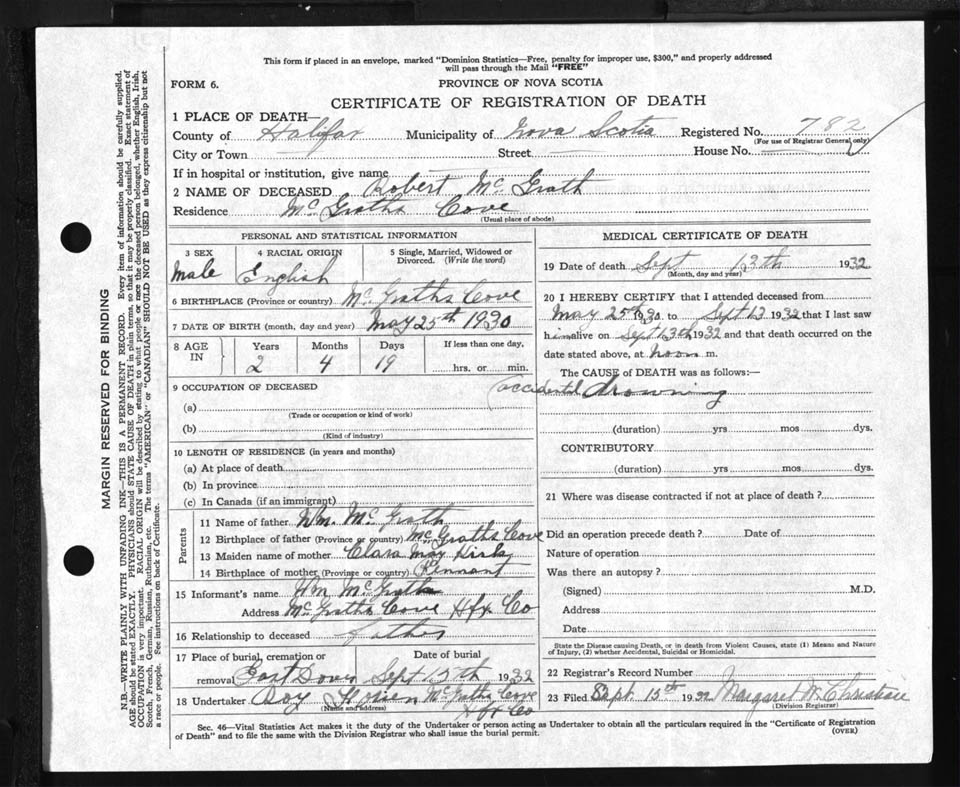 This form if placed in an envelope, marked "Dominion Statistics—Free, penalty for improper use, $300," and properly addressed
will pass through the Mail "FREE"
FORM 6.
PROVINCE OF NOVA SCOTIA
CERTIFICATE OF REGISTRATION OF DEATH
1 PLACE OF DEATH—
County of Halifax Municipality of Nova Scotia Registered No. 782
(For use of Registrar General only)
City or Town Street House No.
If in hospital or institution, give name
2 NAME OF DECEASED Robert McGrath
Residence McGraths Cove
(Usual place of abode)
PERSONAL AND STATISTICAL INFORMATION
3 SEX 4 RACIAL ORIGIN 5 Single, Married, Widowed or
Divorced. (Write the word)
male English
6 BIRTHPLACE (Province or country) McGraths Cove
7 DATE OF BIRTH (month, day and year) May 25th 1930
8 AGE
IN
Years Months Days If less than one day,
2 4 19 hrs. or min.
9 OCCUPATION OF DECEASED
(a)
(Trade or occupation or kind of work)
(b)
(Kind of industry)
10 LENGTH OF RESIDENCE (in years and months)
(a) At place of death
(b) In province
(c) In Canada (if an immigrant)
Parents
11 Name of father Wm. McGrath
12 Birthplace of father (Province or country) McGraths Cove
13 Maiden name of mother Clara May Kirk
14 Birthplace of mother (Province or country) Pennant
15 Informant's name Wm McGrath
Address McGraths Cove Hfx Co
16 Relationship to deceased father
17 Place of burial, cremation or Date of burial
removal East Dover Sept 15th 1932
18 Undertaker Roy McGraths Cove
(Name and address) Hfx Co
MEDICAL CERTIFICATE OF DEATH
19 Date of death Sept 13th 1932
(Month, day and year)
20 I HEREBY CERTIFY that I attended deceased from
May 25th 1930 to Sept 13 1932 that I last saw
him alive on Sept 13th 1932 and that death occurred on the
date stated above, at noon m.
The CAUSE of DEATH was as follows:—
(accidental drowning
(duration) yrs mos dys.
CONTRIBUTORY
(duration) yrs mos dys.
21 Where was disease contracted if not at place of death?
Did an operation precede death? Date of
Nature of operation
Was there an autopsy?
(Signed) M.D.
Address
Date
State the Disease causing Death, or in death from Violent Causes, state (1) Means and Nature
of Injury, (2) whether Accidental, Suicidal or Homicidal.
22 Registrar's Record Number
23 Filed Sept. 15th 1932 Margaret W. Christian
(Division Registrar)
Sec. 46—Vital Statistics Act makes it the duty of the Undertaker or person acting as Undertaker to obtain all the particulars required in the "Certificate of Registration
of Death" and to file the same with the Division Registrar who shall issue the burial permit.
(OVER)
MARGIN RESERVED FOR BINDING
N.B.—WRITE PLAINLY WITH UNFADING INK—THIS IS A PERMANENT RECORD. Every item of information should be carefully supplied.
AGE should be stated EXACTLY. PHYSICIANS should STATE CAUSE OF DEATH in plain terms, so that it may be properly classified. Exact statement of
OCCUPATION is very important. RACIAL ORIGIN will be described by stating to what people or race the deceased person belonged, whether English, Irish,
Scotch, French, German, Russian, Ruthenian, etc. The terms "AMERICAN" or "CANADIAN" SHOULD NOT BE USED as they express citizenship but not
a race or people. See instructions on back of Certificate.